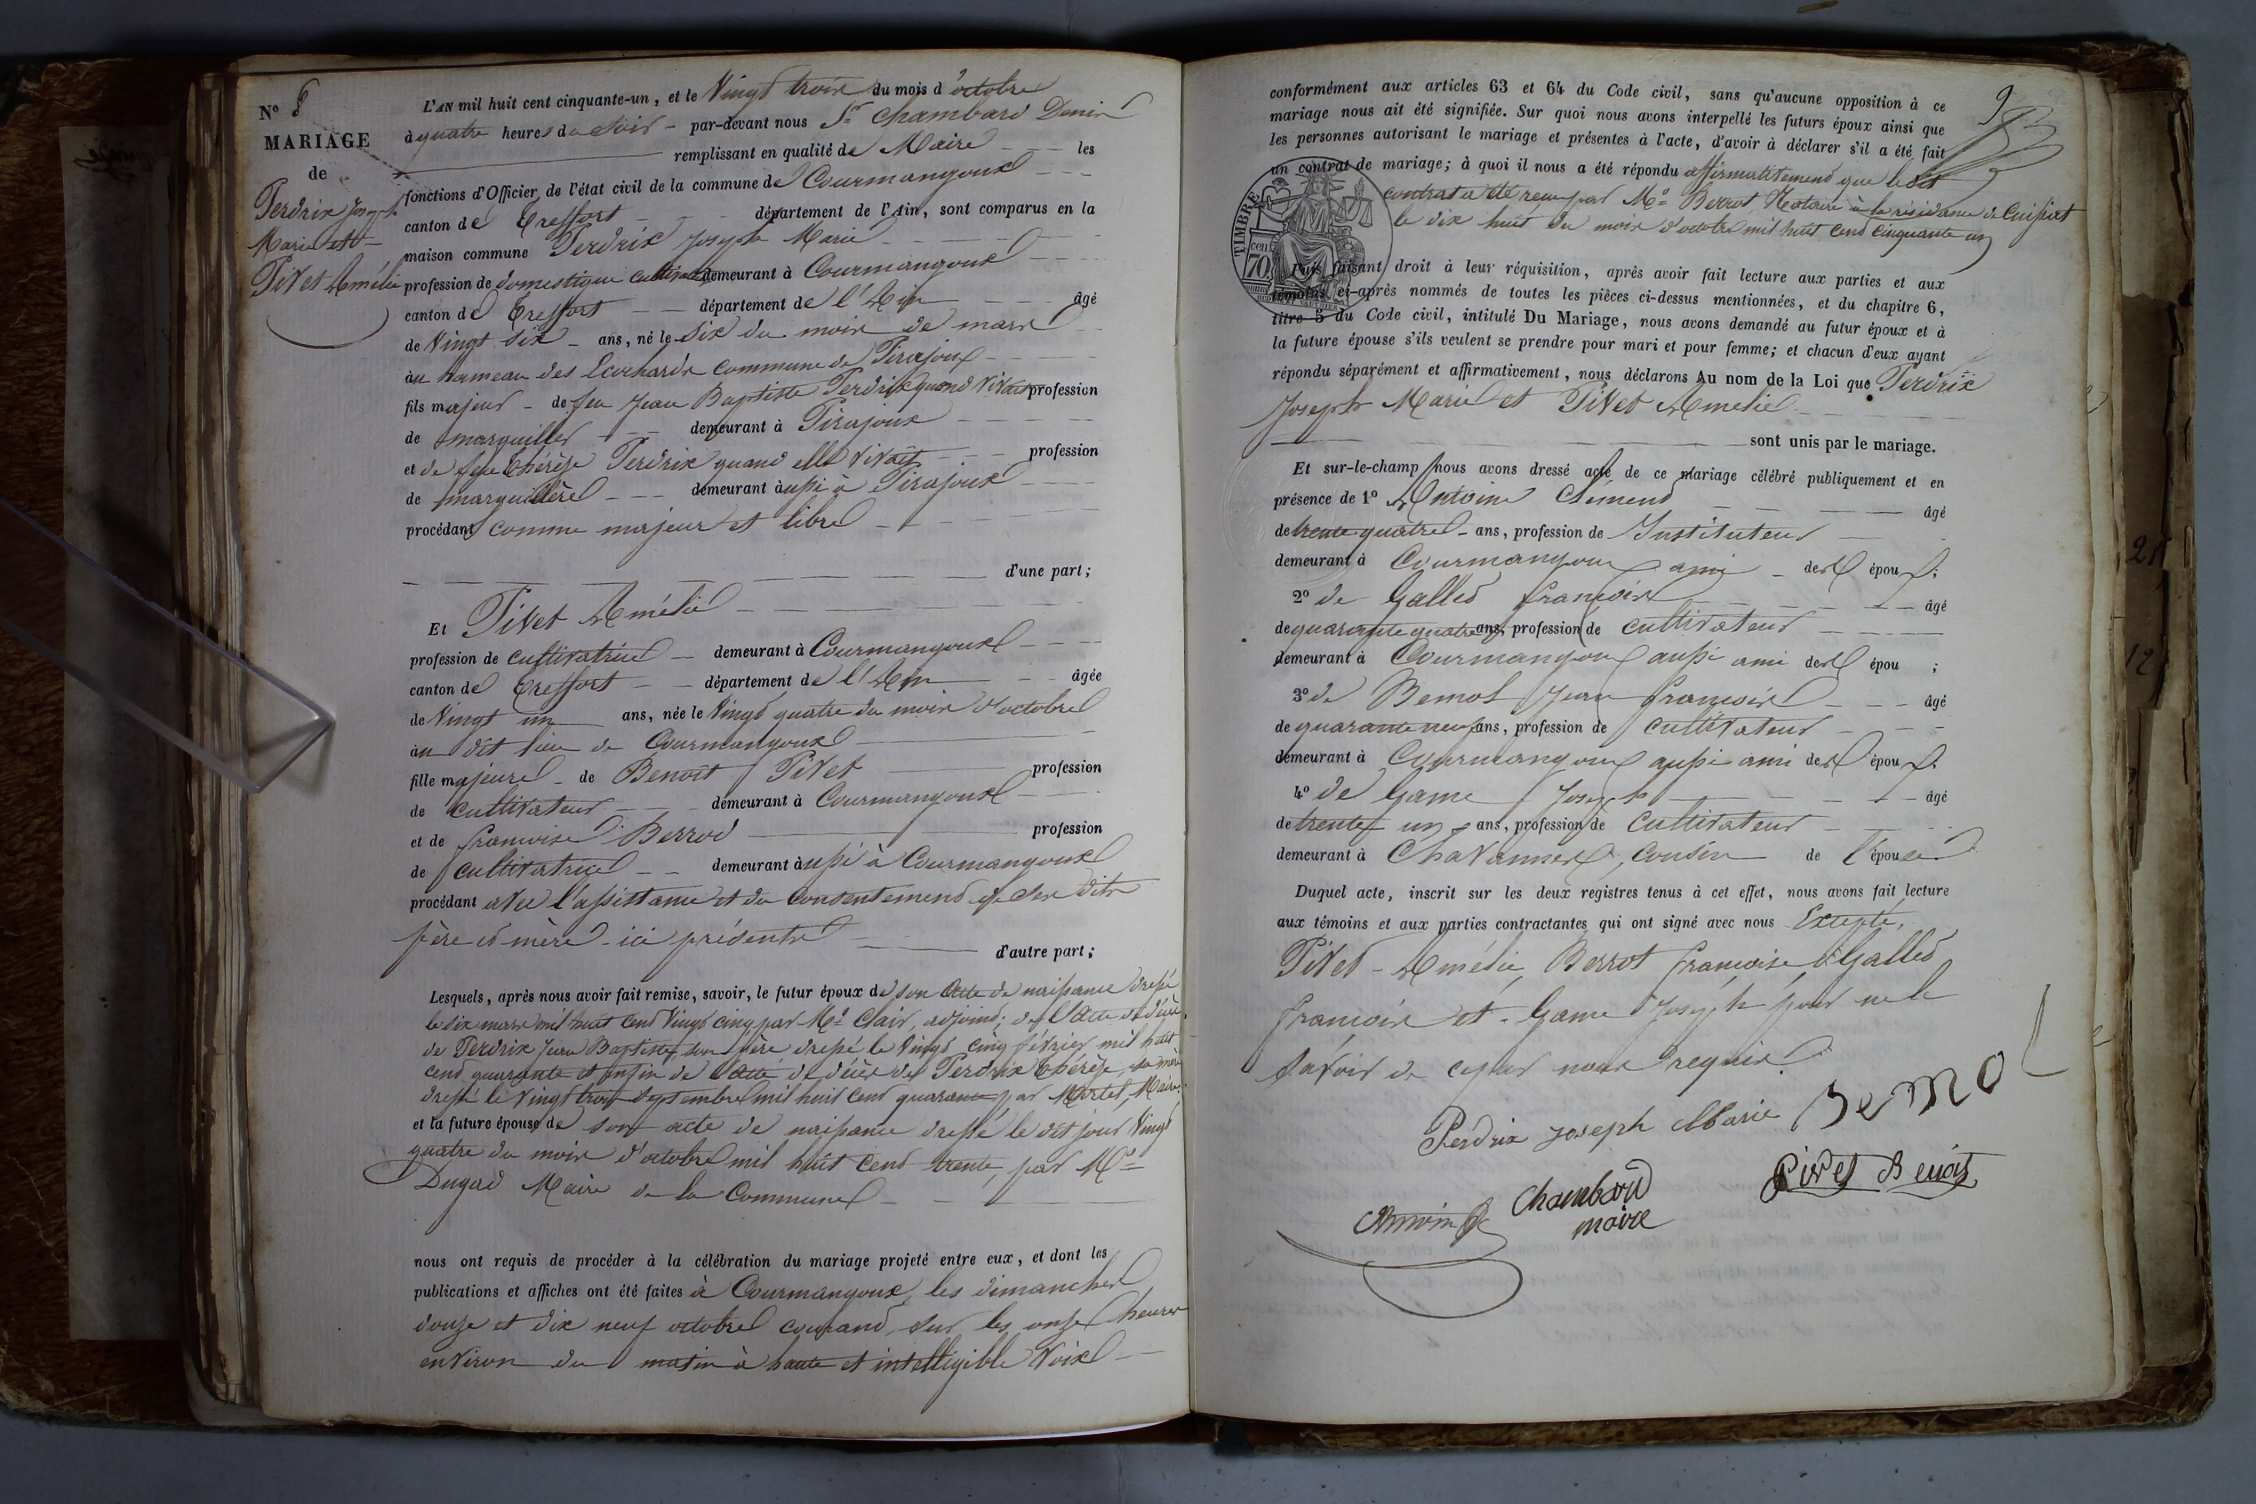 N° 8
MARIAGE
de
Perdrix Joseph
Marie et
Pivet Amélie
L'AN mil huit cent cinquante-un, et le Vingt trois du mois d'octobre
à quatre heures du soir par-devant nous Sr Chambard Denis
remplissant en qualité de Maire les
fonctions d'Officier de l'état civil de la commune de Courmangoux
canton de Treffort département de l'Ain, sont comparus en la
maison commune Perdrix Joseph Marie
profession de domestique cultivateur demeurant à Courmangoux
canton de Treffort département de l'Ain âgé
de Vingt six ans, né le six du mois de mars
au hameau des commune de Pirajoux
fils majeur de feu Jean Baptiste Perdrix quand vivait profession
de marguiller demeurant à Pirajoux
et de feue Thérèse Perdrix quand elle vivait profession
de marguillère demeurant aussi à Pirajoux
procédant comme majeur et libre
d'une part;
Et Pivet Amélie
profession de cultivatrice demeurant à Courmangoux
canton de Treffort département de l'Ain âgée
de Vingt un ans, née le Vingt quatre du mois d'octobre
au dit lieu de Courmangoux
fille majeure de Benoit Pivet profession
de cultivateur demeurant à Courmangoux
et de francoise Berrod profession
de cultivatrice demeurant aussi à Courmangoux
procédant avec l'assistance et du consentement de ses dits
père et mère ici présents
d'autre part;
Lesquels, après nous avoir fait remise, savoir, le futur époux de son acte de naissance dressé
le six mars mil huit cent vingt cinq par Mr Clair, adjoint; de l'acte de décès
de Perdrix Jean Baptiste son père dressé le vingt cinq février mil huit
cent quarante et enfin de l'acte de décès de Perdrix Thérèse, sa mère
dressé le vingt trois septembre mil huit cent quarante par Martel, Maire;
et la future épouse de son acte de naissance dressé le dit jour Vingt
quatre du mois d'octobre mil huit cent trente, par Mr
Dugad Maire de la Commune
nous ont requis de procéder à la célébration du mariage projeté entre eux, et dont les
publications et affiches ont été faites à Courmangoux, les dimanches
douze et dix neuf octobre courant, sur les onze heures
environ du matin à haute et intelligible voix
9
conformément aux articles 63 et 64 du Code civil, sans qu'aucune opposition à ce
mariage nous ait été signifiée. Sur quoi nous avons interpellé les futurs époux ainsi que
les personnes autorisant le mariage et présentes à l'acte, d'avoir à déclarer s'il a été fait
un contrat de mariage; à quoi il nous a été répondu affirmativement que le dit
contrat a été reçu par Me Berrot, Notaire à la résidence de Cuisiat
le dix huit du mois d'octobre mil huit cent cinquante un
TIMBRE
70 cent
Puis faisant droit à leur réquisition, après avoir fait lecture aux parties et aux
témoins ci-après nommés de toutes les pièces ci-dessus mentionnées, et du chapitre 6,
titre 5 du Code civil, intitulé Du Mariage, nous avons demandé au futur époux et à
la future épouse s'ils veulent se prendre pour mari et pour femme; et chacun d'eux ayant
répondu séparément et affirmativement, nous déclarons Au nom de la Loi que Perdrix
Joseph Marie et Pivet Amelie
sont unis par le mariage.
Et sur-le-champ nous avons dressé acte de ce mariage célébré publiquement et en
présence de 1° Antoine Clément âgé
de trente quatre ans, profession de Instituteur
demeurant à Courmangoux ami des époux;
2° de Galled francois âgé
de quarante quatre ans, profession de cultivateur
demeurant à Courmangoux aussi ami des épou ;
3° de Bemol Jean francois âgé
de quarante neuf ans, profession de cultivateur
demeurant à Courmangoux aussi ami des époux.
4° de Game Joseph âgé
de trente un ans, profession de cultivateur
demeurant à Chavannes, cousin de l'épouse
Duquel acte, inscrit sur les deux registres tenus à cet effet, nous avons fait lecture
aux témoins et aux parties contractantes qui ont signé avec nous Excepté,
Pivet Amélie, Berrot francoise, Galled
francois et Game Joseph pour ne le
savoir de ce par nous requis.
Perdrix Joseph Marie Bemol
Chambard
maire
Pivet Benoit
Antoine C